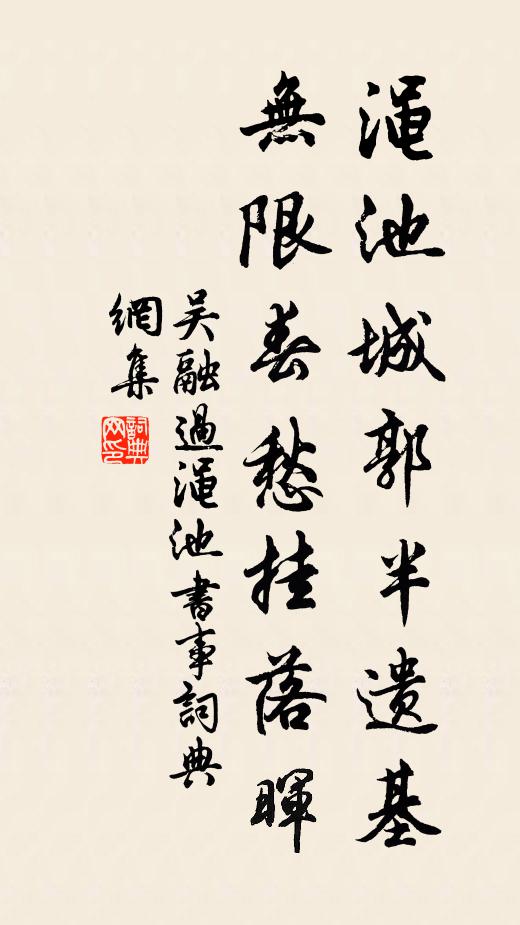 渑池城郭半遗基
無限春愁挂落暉
吴融過渑池書事詞典
網集
詞典网印